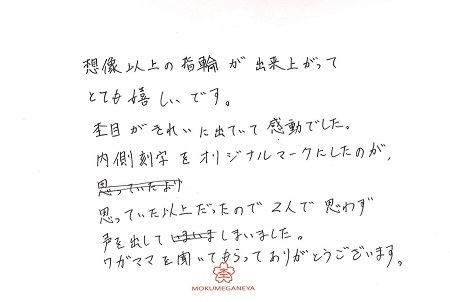 想像以上の指輪が出来上がって
とても嬉しいです。
杢目がきれいに出ていて感動でした。
内側刻字をオリジナルマークにしたのが、
思っていたより
思っていた以上だったので2人で思わず
声を出してしまいました。
ワガママを聞いてもらってありがとうございます。
MOKUMEGANEYA